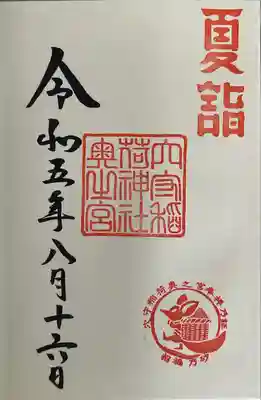 夏詣
穴守稲
荷神社
奥之宮
令和五年八月十六日